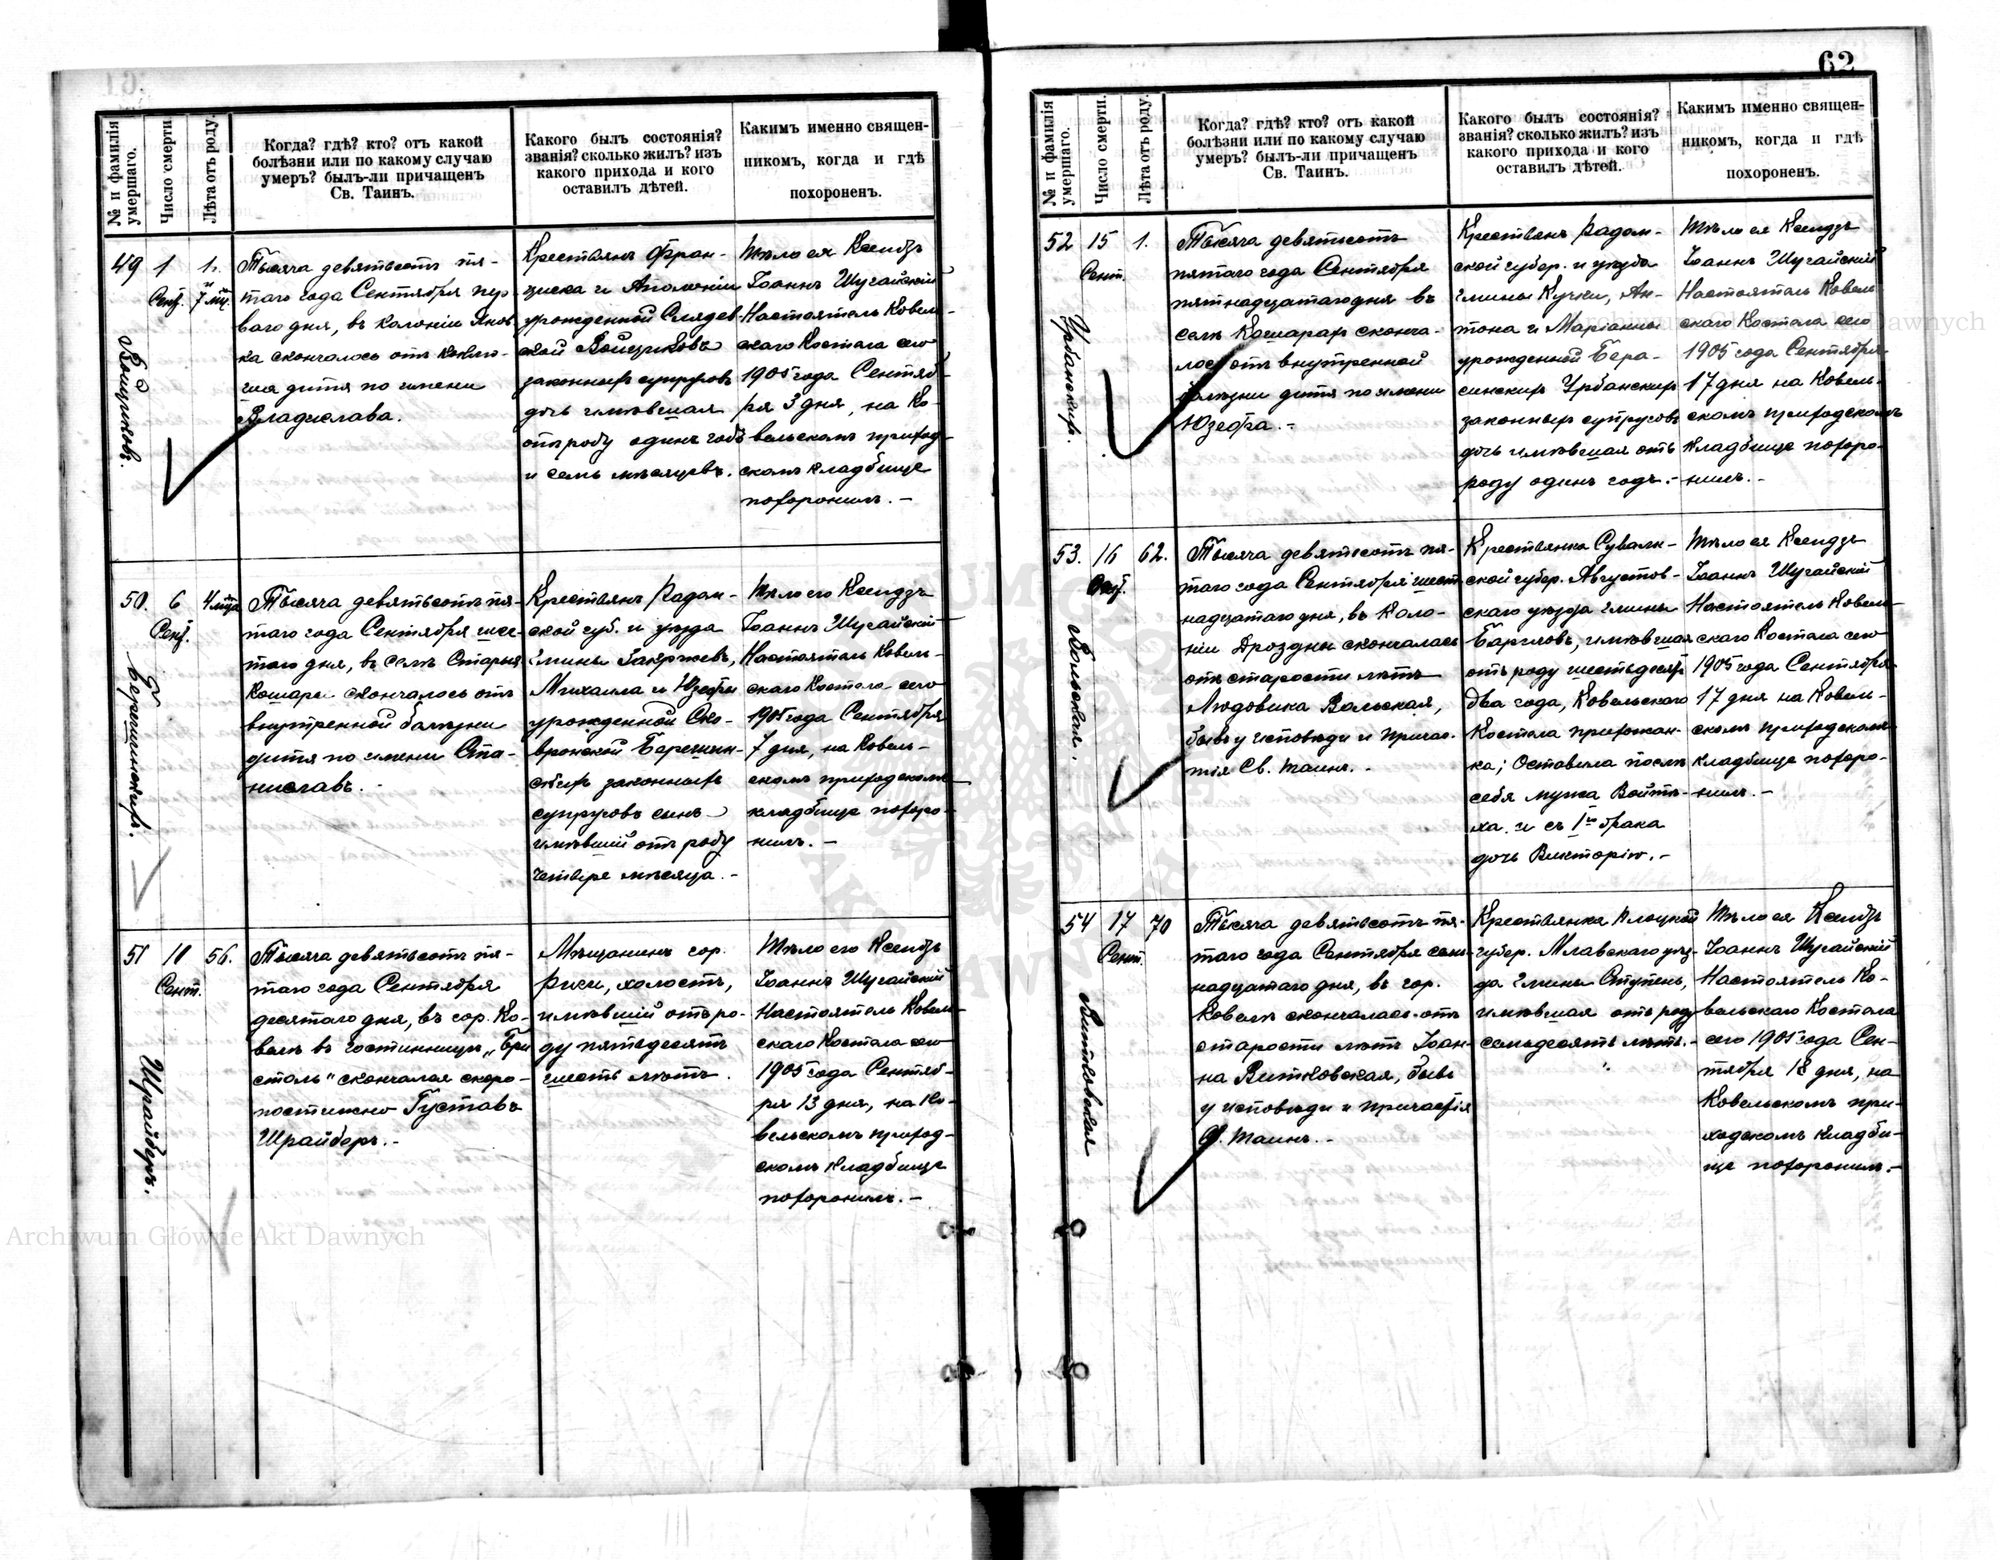 62
№ и фамилія умершаго.
Число смерти.
Лѣта отъ роду.
Когда? гдѣ? кто? отъ какой
болѣзни или по какому случаю
умеръ? былъ-ли причащенъ
Св. Таинъ.
Какого былъ состоянія?
званія? сколько жилъ? изъ
какого прихода и кого
оставилъ дѣтей.
Какимъ именно священ-
никомъ, когда и гдѣ
похороненъ.
49
1
Сент.
1 г. и 7 мц.
Войциковъ.
Тысяча девятьсотъ пя-
таго года Сентября пер
ваго дня, въ колоніи Янов
ка скончалось отъ
дитя по имени
Владислава.
Крестьянъ Фран-
циска и Аполоніи
урожденной Слядев
ской Войциковъ
законныхъ супруговъ
дочь имѣвшая
отъ роду одинъ годъ
и семь мѣсяцевъ.
Тѣло ея Ксендзъ
Іоаннъ Шугайскій
Настоятель Ковель-
скаго Костела сего
1905 года Сентяб-
ря 3 дня, на Ко-
вельскомъ приход-
скомъ кладбище
похоронилъ. –
50.
6
Сент.
4 м-ца
Тысяча девятьсотъ пя-
таго года Сентября шес-
таго дня, въ селѣ Старыя
Кошары скончалось отъ
внутренной болѣзни
дитя по имени Ста-
ниславъ. –
Крестьянъ Радом-
ской губ. и уѣзда
гмины Закржевъ,
Михаила и Юзефы
урожденной Ско-
вронской
законныхъ
супруговъ сынъ
имѣвшій отъ роду
четыре мѣсяца. –
Тѣло его Ксендзъ
Іоаннъ Шугайскій
Настоятель Ковель-
скаго Костела сего
1905 года Сентября
7 дня, на Ковель-
скомъ приходскомъ
кладбище похоро-
нилъ. –
51
10
Сент.
56.
Шрайберъ.
Тысяча девятьсотъ пя-
таго года Сентября
десятаго дня, въ гор. Ко-
велѣ въ гостинницѣ „Бри
столь“ скончался скоро-
постижно Густавъ
Шрайберъ. –
Мѣщанинъ гор.
Риги, холостъ,
имѣвшій отъ ро-
ду пятьдесятъ
шесть лѣтъ.
Тѣло его Ксендзъ
Іоаннъ Шугайскій
Настоятель Ковель-
скаго Костела сего
1905 года Сентяб-
ря 13 дня, на Ко-
вельскомъ приход-
скомъ кладбище
похоронилъ. –
№ и фамилія умершаго.
Число смерти.
Лѣта отъ роду.
Когда? гдѣ? кто? отъ какой
болѣзни или по какому случаю
умеръ? былъ-ли причащенъ
Св. Таинъ.
Какого былъ состоянія?
званія? сколько жилъ? изъ
какого прихода и кого
оставилъ дѣтей.
Какимъ именно священ-
никомъ, когда и гдѣ
похороненъ.
52
15
Сент.
1.
Урбанскихъ.
Тысяча девятьсотъ
пятаго года Сентября
пятнадцатаго дня въ
селѣ Кошарах сконча-
лось отъ внутренной
болѣзни дитя по имени
Юзефа. –
Крестьянъ Радом-
ской губер. и уѣзда
гмины Кучки, Ан-
тона и Маріанны
урожденной Бера-
синскихъ Урбанскихъ
законныхъ супруговъ
дочь имѣвшая отъ
роду одинъ годъ. –
Тѣло ея Ксендзъ
Іоаннъ Шугайскій
Настоятель Ковель
скаго Костела сего
1905 года Сентября
17 дня на Ковель-
скомъ приходскомъ
кладбище похоро-
нилъ. –
53.
16
Сент.
62.
Вольская.
Тысяча девятьсотъ пя-
таго года Сентября шест
надцатаго дня, въ коло-
ніи Дроздни скончалась
отъ старости лѣтъ
Людовика Вольская,
бывъ у исповѣди и причас-
тія Св. Таинъ. –
Крестьянка Сувалк-
ской губер. Августов-
скаго уѣзда гмины
Баргловъ, имѣвшая
отъ роду шестьдесятъ
два года, Ковельскаго
Костела прихожан-
ка; Оставила послѣ
себя мужа Войтѣ-
ха и съ 1го брака
дочь Викторію. –
Тѣло ея Ксендзъ
Іоаннъ Шугайскій
Настоятель Ковель-
скаго Костела сего
1905 года Сентября
17 дня на Ковель-
скомъ приходскомъ
кладбище похоро-
нилъ. –
54
17
Сент.
70
Витковская
Тысяча девятьсотъ пя-
таго года Сентября сем-
надцатаго дня, въ гор.
Ковелѣ скончалась отъ
старости лѣтъ Іоан-
на Витковская, бывъ
у исповѣди и причастія
Св. Таинъ. –
Крестьянка Плоцкой
губер. Млавскаго уѣз-
да гмины Ступень,
имѣвшая отъ роду
семьдесятъ лѣтъ. –
Тѣло ея Ксендзъ
Іоаннъ Шугайскій
Настоятель Ко-
вельскаго Костела
сего 1905 года Сен-
тября 18 дня, на
Ковельскомъ при-
ходскомъ кладби-
ще похоронилъ. –
Archiwum Główne Akt Dawnych
Archiwum Główne Akt Dawnych